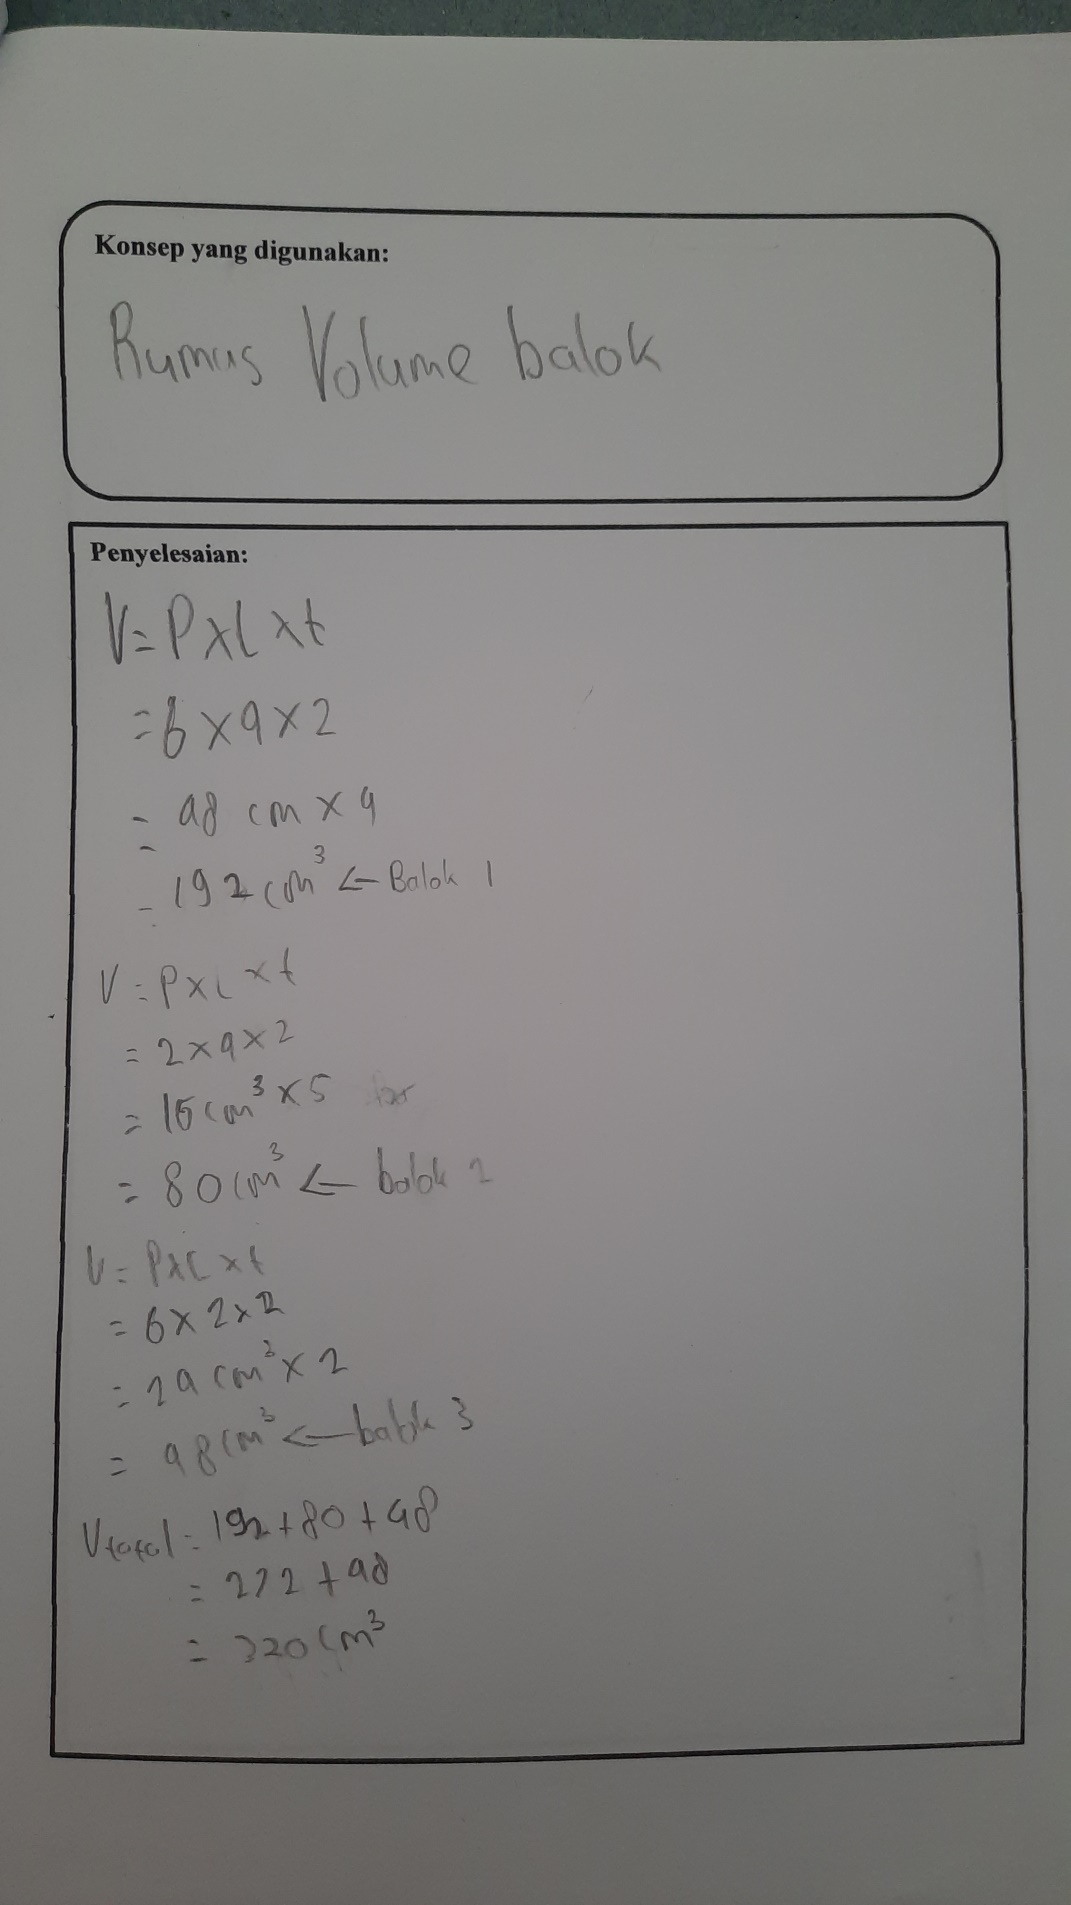 Konsep yang digunakan:
Rumus Volume balok
Penyelesaian:
V = P x l x t
= 6 x 4 x 2
= 48 cm x 4
= 192 cm³ ← Balok 1
V = P x l x t
= 2 x 4 x 2
= 16 cm³ x 5
= 80 cm³ ← balok 2
V = P x l x t
= 6 x 2 x 2
= 24 cm³ x 2
= 48 cm³ ← balok 3
V total = 192 + 80 + 48
= 272 + 48
= 320 cm³